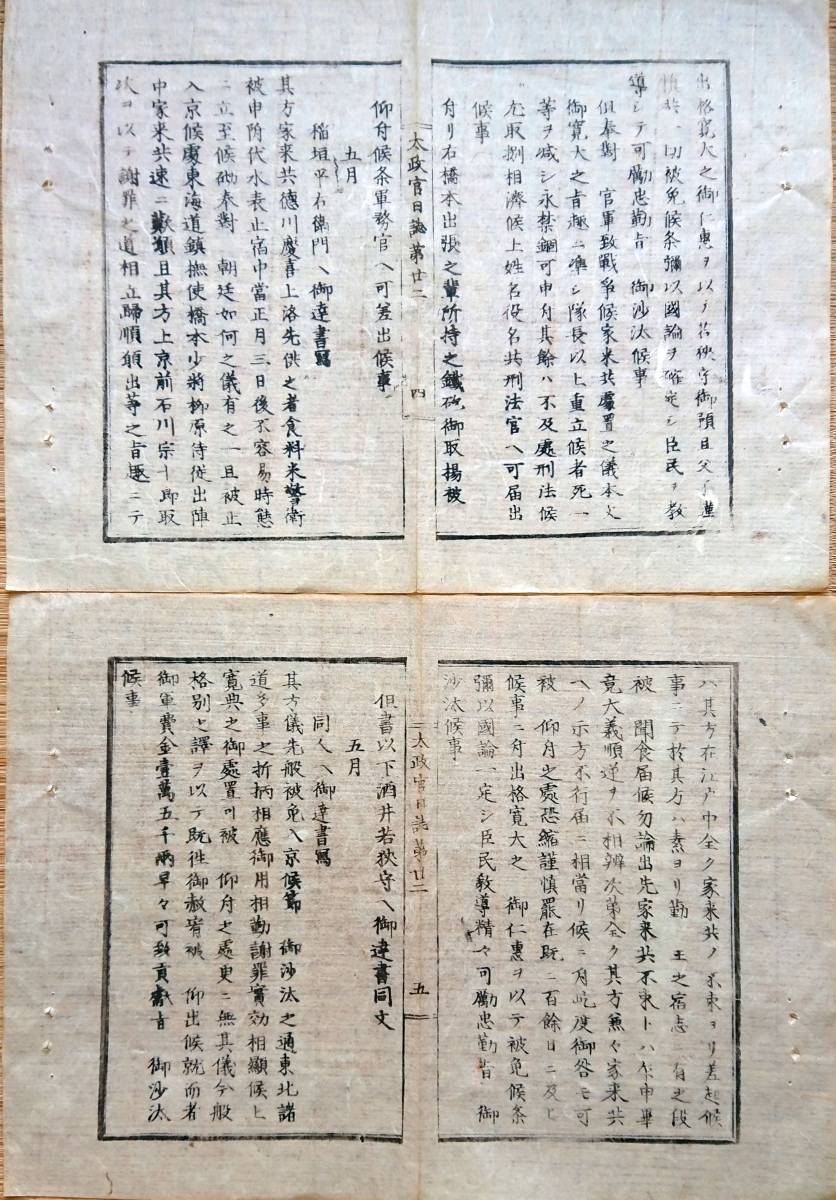 出格寛大之御仁惠ヲ以テ若狹守御預且父子蓮
慎共一切被免候条彌以國論ヲ確定シ臣民ヲ教
導シテ可勵忠勤旨　御沙汰候事
但奉對　官軍致戰爭候家来共處置之儀本文
御寛大之旨趣ニ凖シ隊長以上重立候者死一
等ヲ减シ永禁錮可申付其餘ハ不及處刑法候
尤取捌相濟候上姓名役名共刑法官ヘ可届出
候事
付リ右橋本出張之輩所持之鐵砲御取揚被
太政官日誌第廿二
四
仰付候条軍務官ヘ可差出候事
五月
稲垣平右衛門ヘ御達書寫
其方家来共德川慶喜上洛先供之者食料米警衛
被申附代水表止宿中當正月三日後不容易時態
ニ立至候砌奉對　朝廷如何之儀有之一旦被止
入京候處東海道鎮撫使橋本少將柳原侍従出陣
中家来共速ニ歎願且其方上京前石川宗十郎取
次ヲ以テ謝罪之道相立歸順願出等之旨趣ニテ
ハ其方在江戸中全ク家来共ノ不束ヨリ差起候
事ニテ於其方ハ素ヨリ勤　王之宿志　有之段
被　聞食届候勿論出先家来共不束トハ乍申畢
竟大義順逆ヲ不相辨次第全ク其方兼々家来共
ヘノ示方不行届ニ相當リ候ニ付屹度御咎モ可
被　仰付之處恐縮謹慎罷在既ニ百餘日ニ及ヒ
候事ニ付出格寛大之　御仁惠ヲ以テ被免候条
彌以國論一定シ臣民教導精々可勵忠勤旨　御
沙汰候事
太政官日誌第廿二
五
但書以下酒井若狹守ヘ御達書同文
五月
同人ヘ御達書寫
其方儀先般被免入京候節　御沙汰之通東北諸
道多事之折柄相應御用相勤謝罪實効相顯候上
寛典之御處置可被　仰付之處更ニ無其儀今般
格別之譯ヲ以テ既徃御赦宥被　仰出候就而者
御軍費金壹萬五千兩早々可致貢獻旨　御沙汰
候事